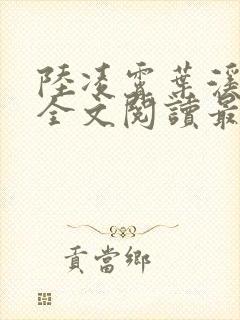 陸凌霄葉
全文閱讀最
貢當鄉